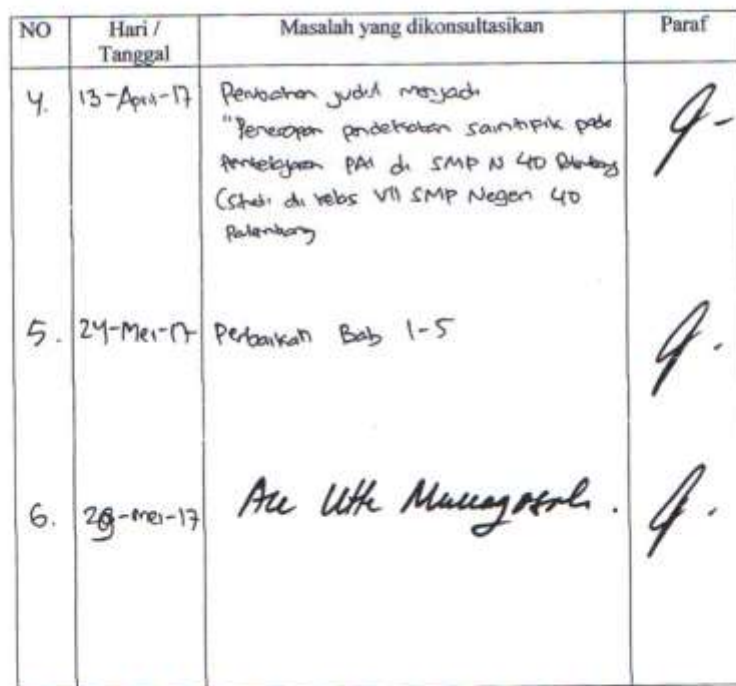 NO Hari / Tanggal Masalah yang dikonsultasikan Paraf
4. 13-April-17 Perubahan judul menjadi
"Penerapan pendekatan saintipik pada
pembelajaran PAI di SMP N 40 Palembang
(Studi di kelas VII SMP Negeri 40
Palembang
5. 24-Mei-17 Perbaikan Bab 1-5
6. -Mei-17 Acc Utk Munaqosah.